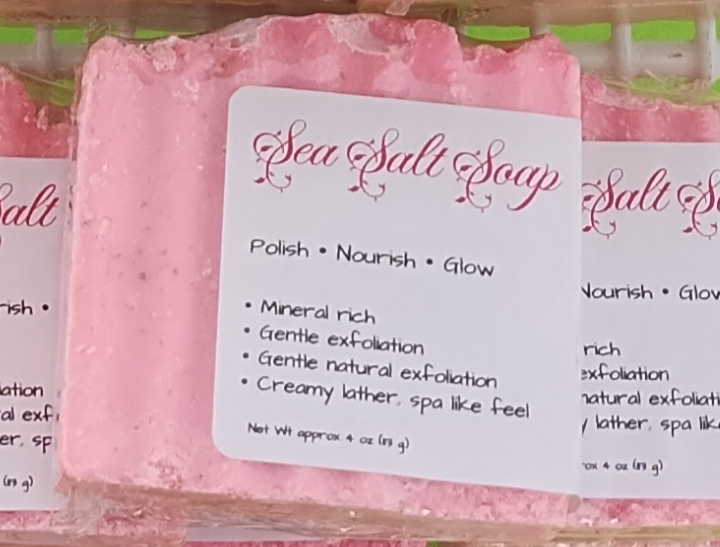 Sea Salt Soap
Polish • Nourish • Glow
• Mineral rich
• Gentle exfoliation
• Gentle natural exfoliation
• Creamy lather, spa like feel
Net Wt approx 4 oz g)
alt
rish •
ation
al exf
er, sp
g)
Salt S
Nourish • Glow
rich
exfoliation
natural exfoliati
y lather, spa lik
ox 4 oz g)